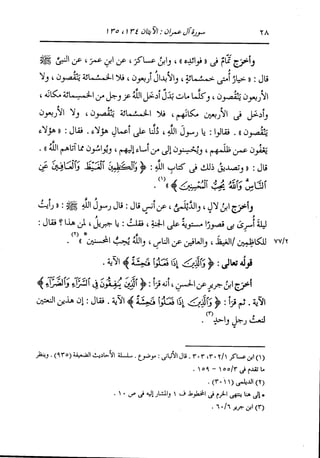 ٢٨ سورة آل عمران : الآيتان ١٣٤، ١٣٥
وأخرج تمام فى « فوائده » ، وابن عساكر ، عن ابن عمر ، عن النبى ﷺ
قال : « خيار أمتى خمسمائة ، والأبدال أربعون ، فلا الخمسمائة ينقصون ، ولا
الأربعون ينقصون ، وكلما مات بدل أدخل الله عز وجل من الخمسمائة مكانه ،
وأدخل فى الأربعين مكانهم ، فلا الخمسمائة ينقصون ، ولا الأربعون
ينقصون » . فقالوا : يا رسول الله ، دلنا على أعمال هؤلاء . فقال : « هؤلاء
يعفون عمن ظلمهم ، ويحسنون إلى من أساء إليهم ، ويواسون مما آتاهم الله » .
قال : « وتصديق ذلك فى كتاب الله : ﴿ والكاظمين الغيظ والعافين عن
الناس والله يحب المحسنين ﴾ »(١) .
وأخرج ابن لال ، والديلمى ، عن أنس قال : قال رسول الله ﷺ : « رأيت
ليلة أسرى بى قصورا مستوية على الجنة ، فقلت : يا جبريل ، لمن هذا ؟ فقال :
٧٧/٢ للكاظمين الغيظ ، والعافين عن الناس ، والله يحب المحسنين »(٢)* .
قوله تعالى : ﴿ والذين إذا فعلوا فاحشة ﴾ الآية .
أخرج ابن جرير عن الحسن ، أنه قرأ : ﴿ الذين ينفقون فى السراء والضراء ﴾
الآية . ثم قرأ : ﴿ والذين إذا فعلوا فاحشة ﴾ الآية . فقال : إن هذين النعتين
لنعت رجل واحد(٣) .
(١) ابن عساكر ٣٠٢/١، ٣٠٣ . قال الألبانى : موضوع . سلسلة الأحاديث الضعيفة (٩٣٥) . وينظر
ما تقدم فى ١٥٥/٣ - ١٥٩ .
(٢) الديلمى (٣٠١١) .
* إلى هنا ينتهى الخرم فى المخطوط ف ١ والمشار إليه فى ص ١٠ .
(٣) ابن جرير ٦٠/٦ .